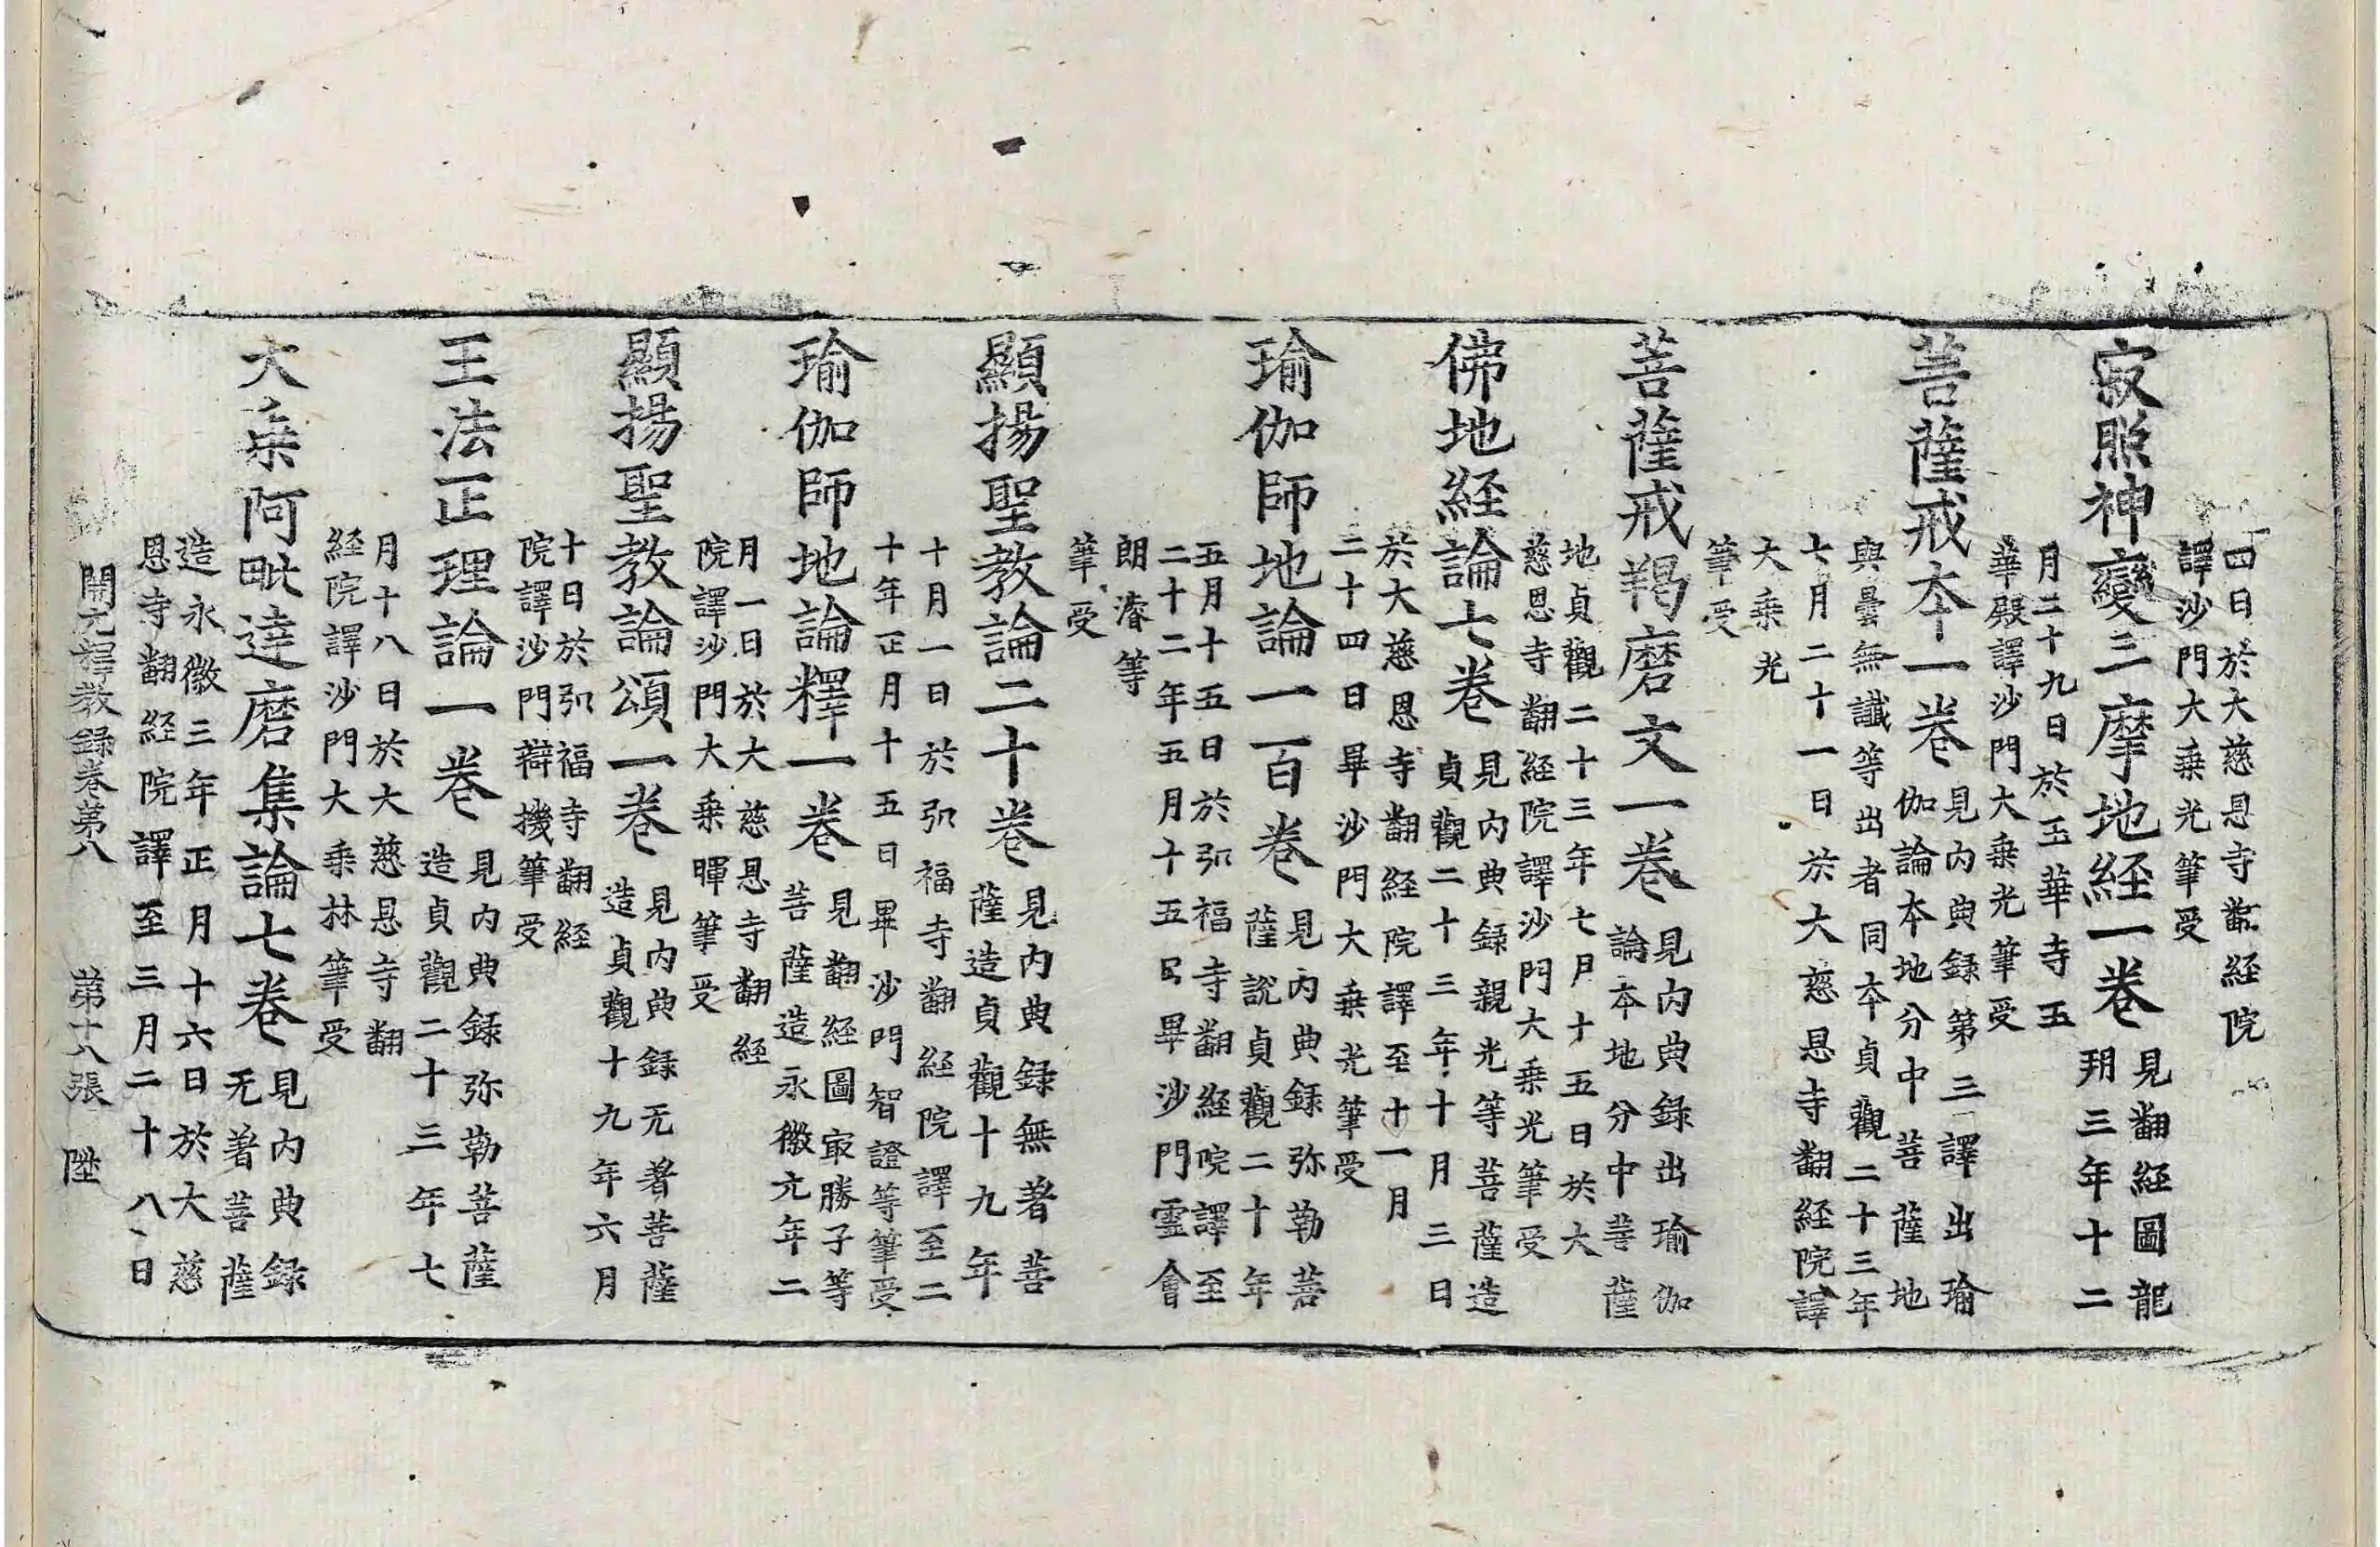 四日於大慈恩寺翻経院
譯沙門大乗光筆受
寂照神變三摩地経一卷
見翻経圖龍
朔三年十二
月二十九日於玉華寺玉
華殿譯沙門大乗光筆受
菩薩戒本一卷
見内典録第三譯出瑜
伽論本地分中菩薩地
與曇無讖等出者同本貞觀二十三年
七月二十一日於大慈恩寺翻経院譯
大乗光
筆受
菩薩戒羯磨文一卷
見内典録出瑜伽
論本地分中菩薩
地貞觀二十三年七月十五日於大
慈恩寺翻経院譯沙門大乗光筆受
佛地経論七卷
見内典録親光等菩薩造
貞觀二十三年十月三日
於大慈恩寺翻経院譯至十一月
二十四日畢沙門大乗光筆受
瑜伽師地論一百卷
見内典録弥勒菩
薩說貞觀二十年
五月十五日於弘福寺翻経院譯至
二十二年五月十五日畢沙門霊會
朗濬等
筆受
顯揚聖教論二十卷
見内典録無著菩
薩造貞觀十九年
十月一日於弘福寺翻経院譯至二
十年正月十五日畢沙門智證等筆受
瑜伽師地論釋一卷
見翻経圖㝡勝子等
菩薩造永徽元年二
月一日於大慈恩寺翻経
院譯沙門大乗暉筆受
顯揚聖教論頌一卷
見内典録无著菩薩
造貞觀十九年六月
十日於弘福寺翻経
院譯沙門辯機筆受
王法正理論一卷
見内典録弥勒菩薩
造貞觀二十三年七
月十八日於大慈恩寺翻
経院譯沙門大乗林筆受
大乗阿毗達磨集論七卷
見内典録
无著菩薩
造永徽三年正月十六日於大慈
恩寺翻経院譯至三月二十八日
開元釋教録卷第八 第十八張 陞